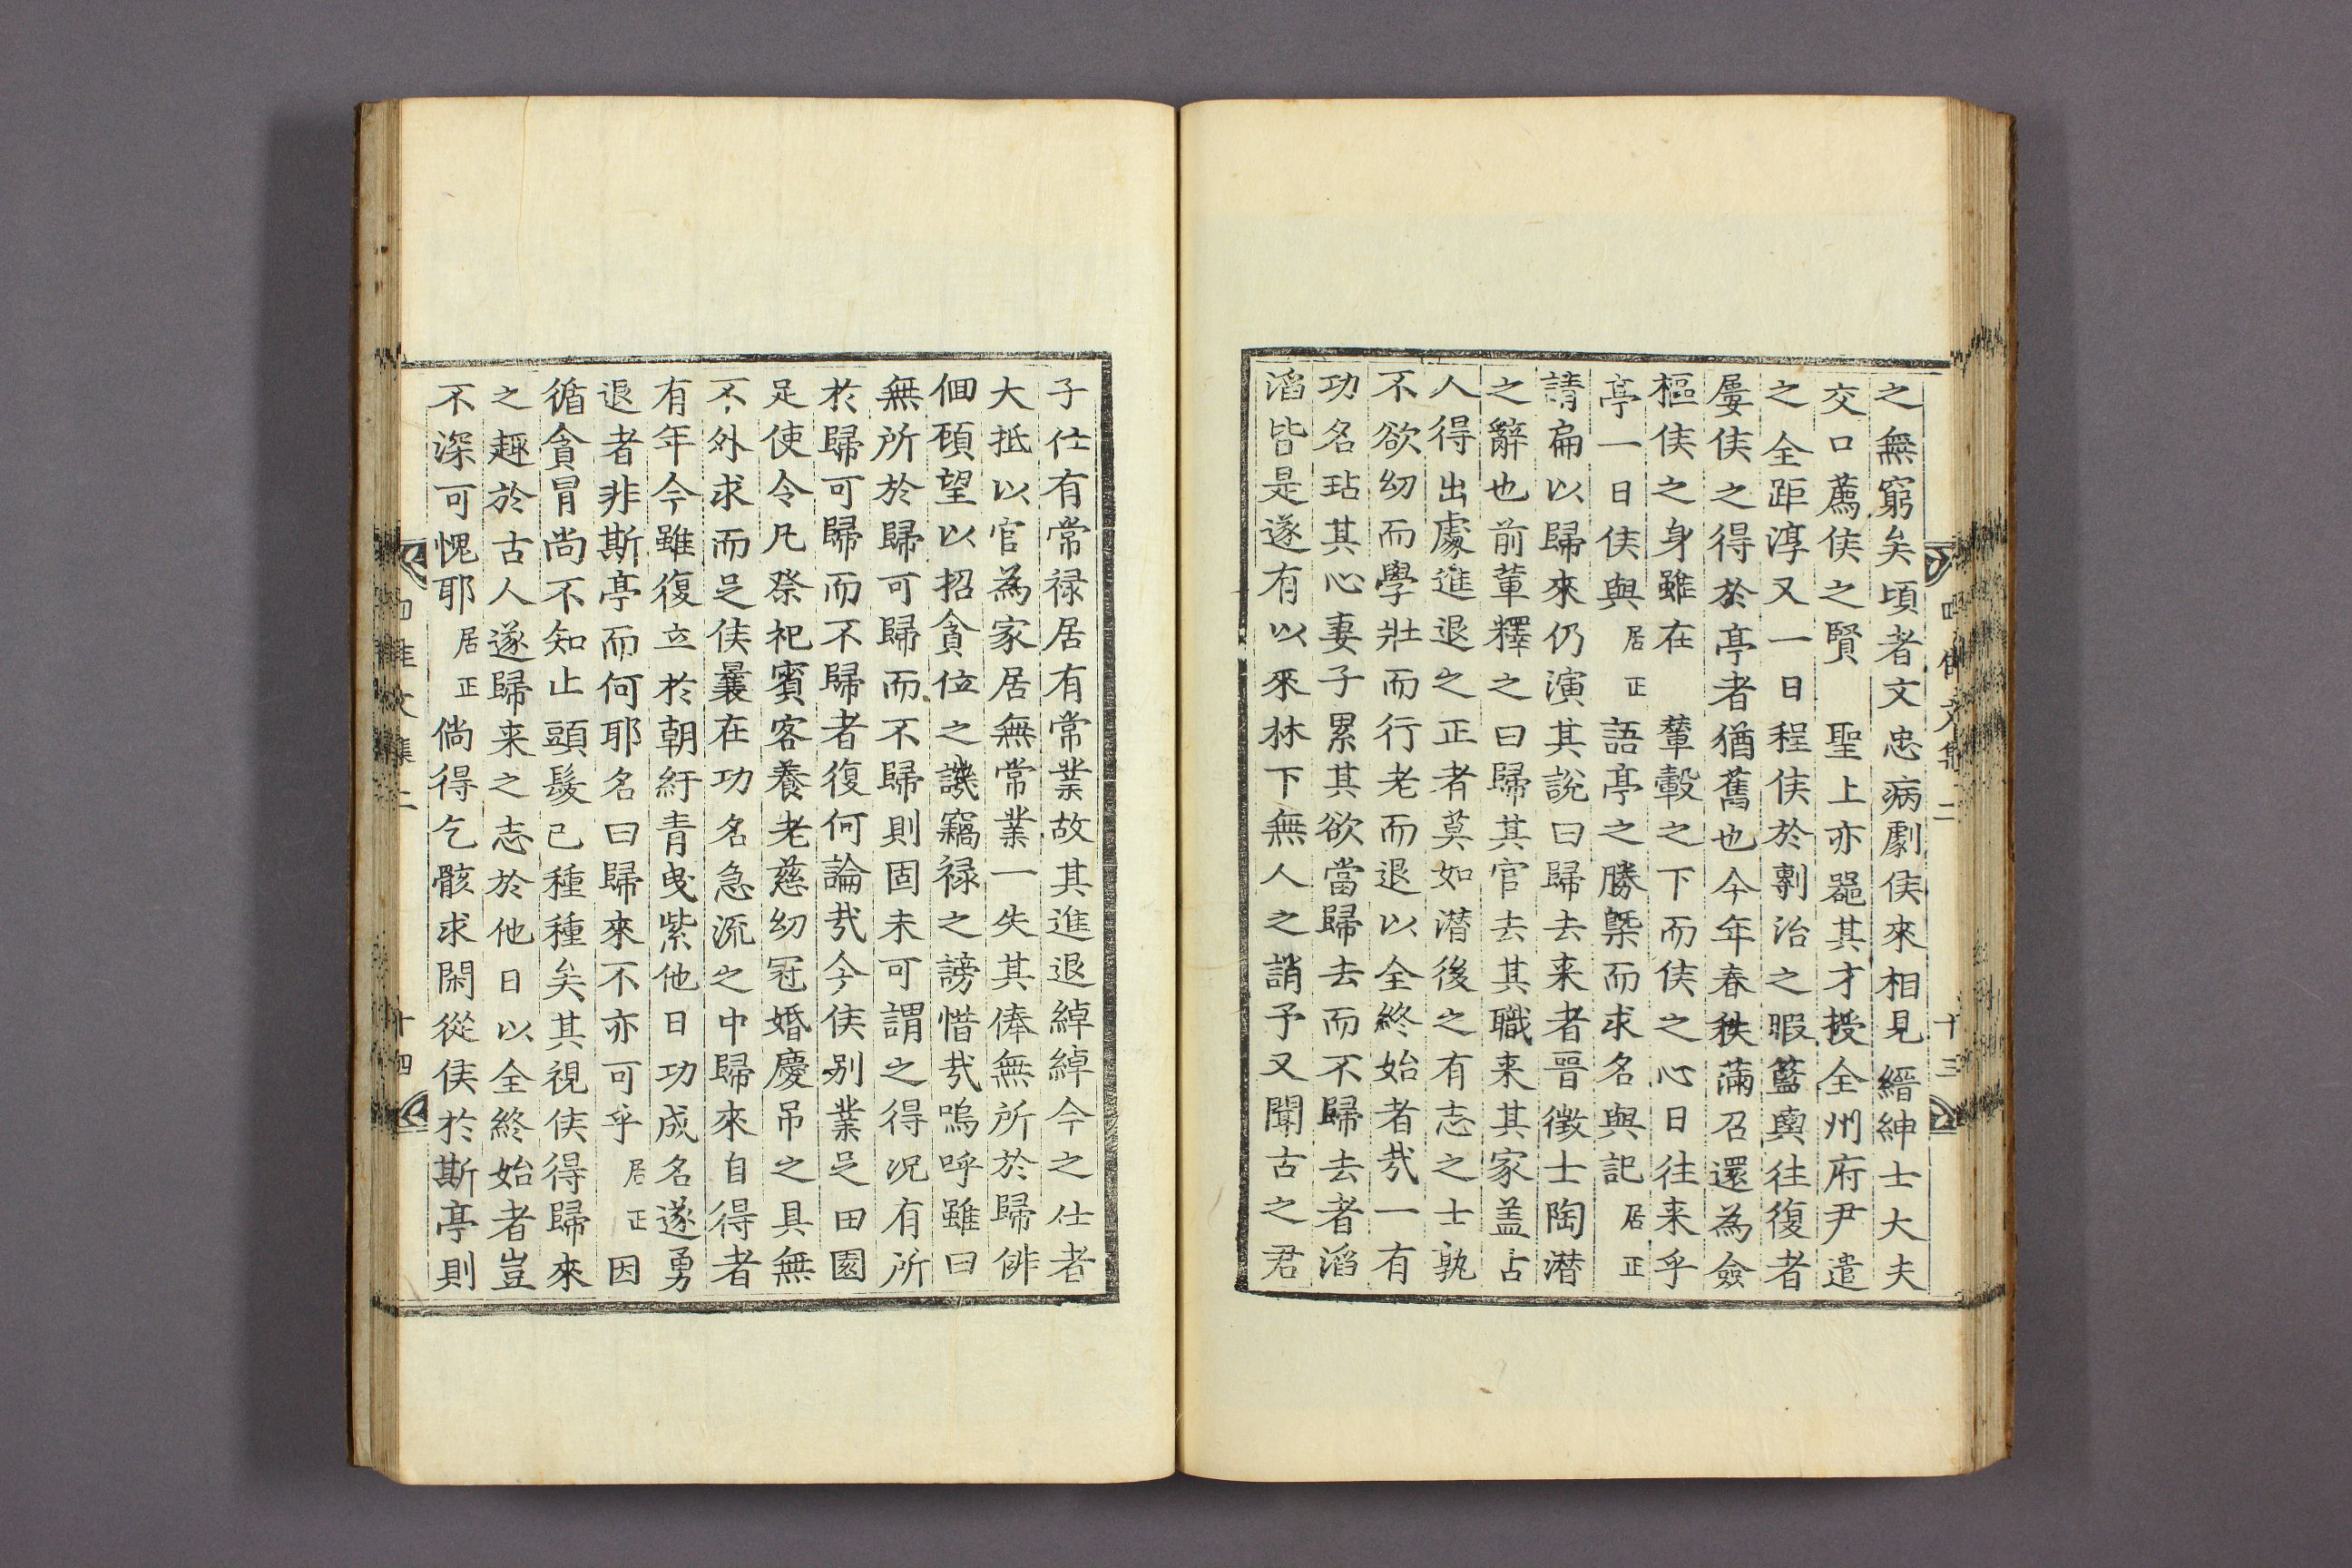 之無窮矣頃者文忠病劇侯來相見縉紳士大夫
交口薦侯之賢　聖上亦器其才授全州府尹遣
之全距淳又一日程侯於剸治之暇籃輿往復者
屢侯之得於亭者猶舊也今年春秩滿召還為僉
樞侯之身雖在　輦轂之下而侯之心日往来乎
亭一日侯與居正語亭之勝槩而求名與記居正
請扁以歸來仍演其說曰歸去来者晋徵士陶潜
之辭也前軰釋之曰歸其官去其職来其家盖占
人得出處進退之正者莫如潜後之有志之士孰
不欲幼而學壯而行老而退以全終始者㢤一有
功名玷其心妻子累其欲當歸去而不歸去者滔
滔皆是遂有以來林下無人之誚予又聞古之君
四佳文集二　十三
子仕有常禄居有常業故其進退綽綽今之仕者
大抵以官為家居無常業一失其俸無所於歸俳
佪頋望以招貪位之譏竊禄之謗惜㢤嗚呼雖曰
無所於歸可歸而不歸則固未可謂之得况有所
於歸可歸而不歸者復何論㢤今侯别業足田園
足使令凡祭祀賓客養老慈幼冠婚慶吊之具無
不外求而足侯曩在功名急流之中歸來自得者
有年今雖復立於朝紆青曳紫他日功成名遂勇
退者非斯亭而何耶名曰歸來不亦可乎居正因
循貪冒尚不知止頭髮已種種矣其視侯得歸來
之趣於古人遂歸来之志於他日以全終始者豈
不深可愧耶居正倘得乞骸求閑從侯於斯亭則
四佳文集二　十四